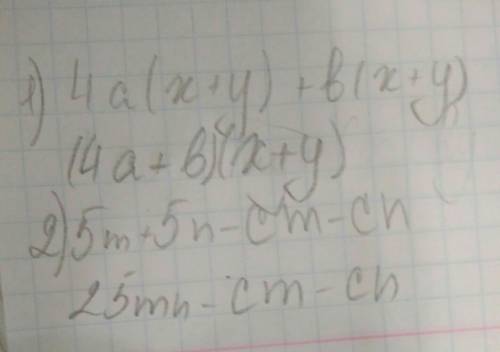 1) 4a(x+y)+b(x+y)
(4a+b)(x+y)
2) 5m+5n-cm-cn
25mn-cm-cn